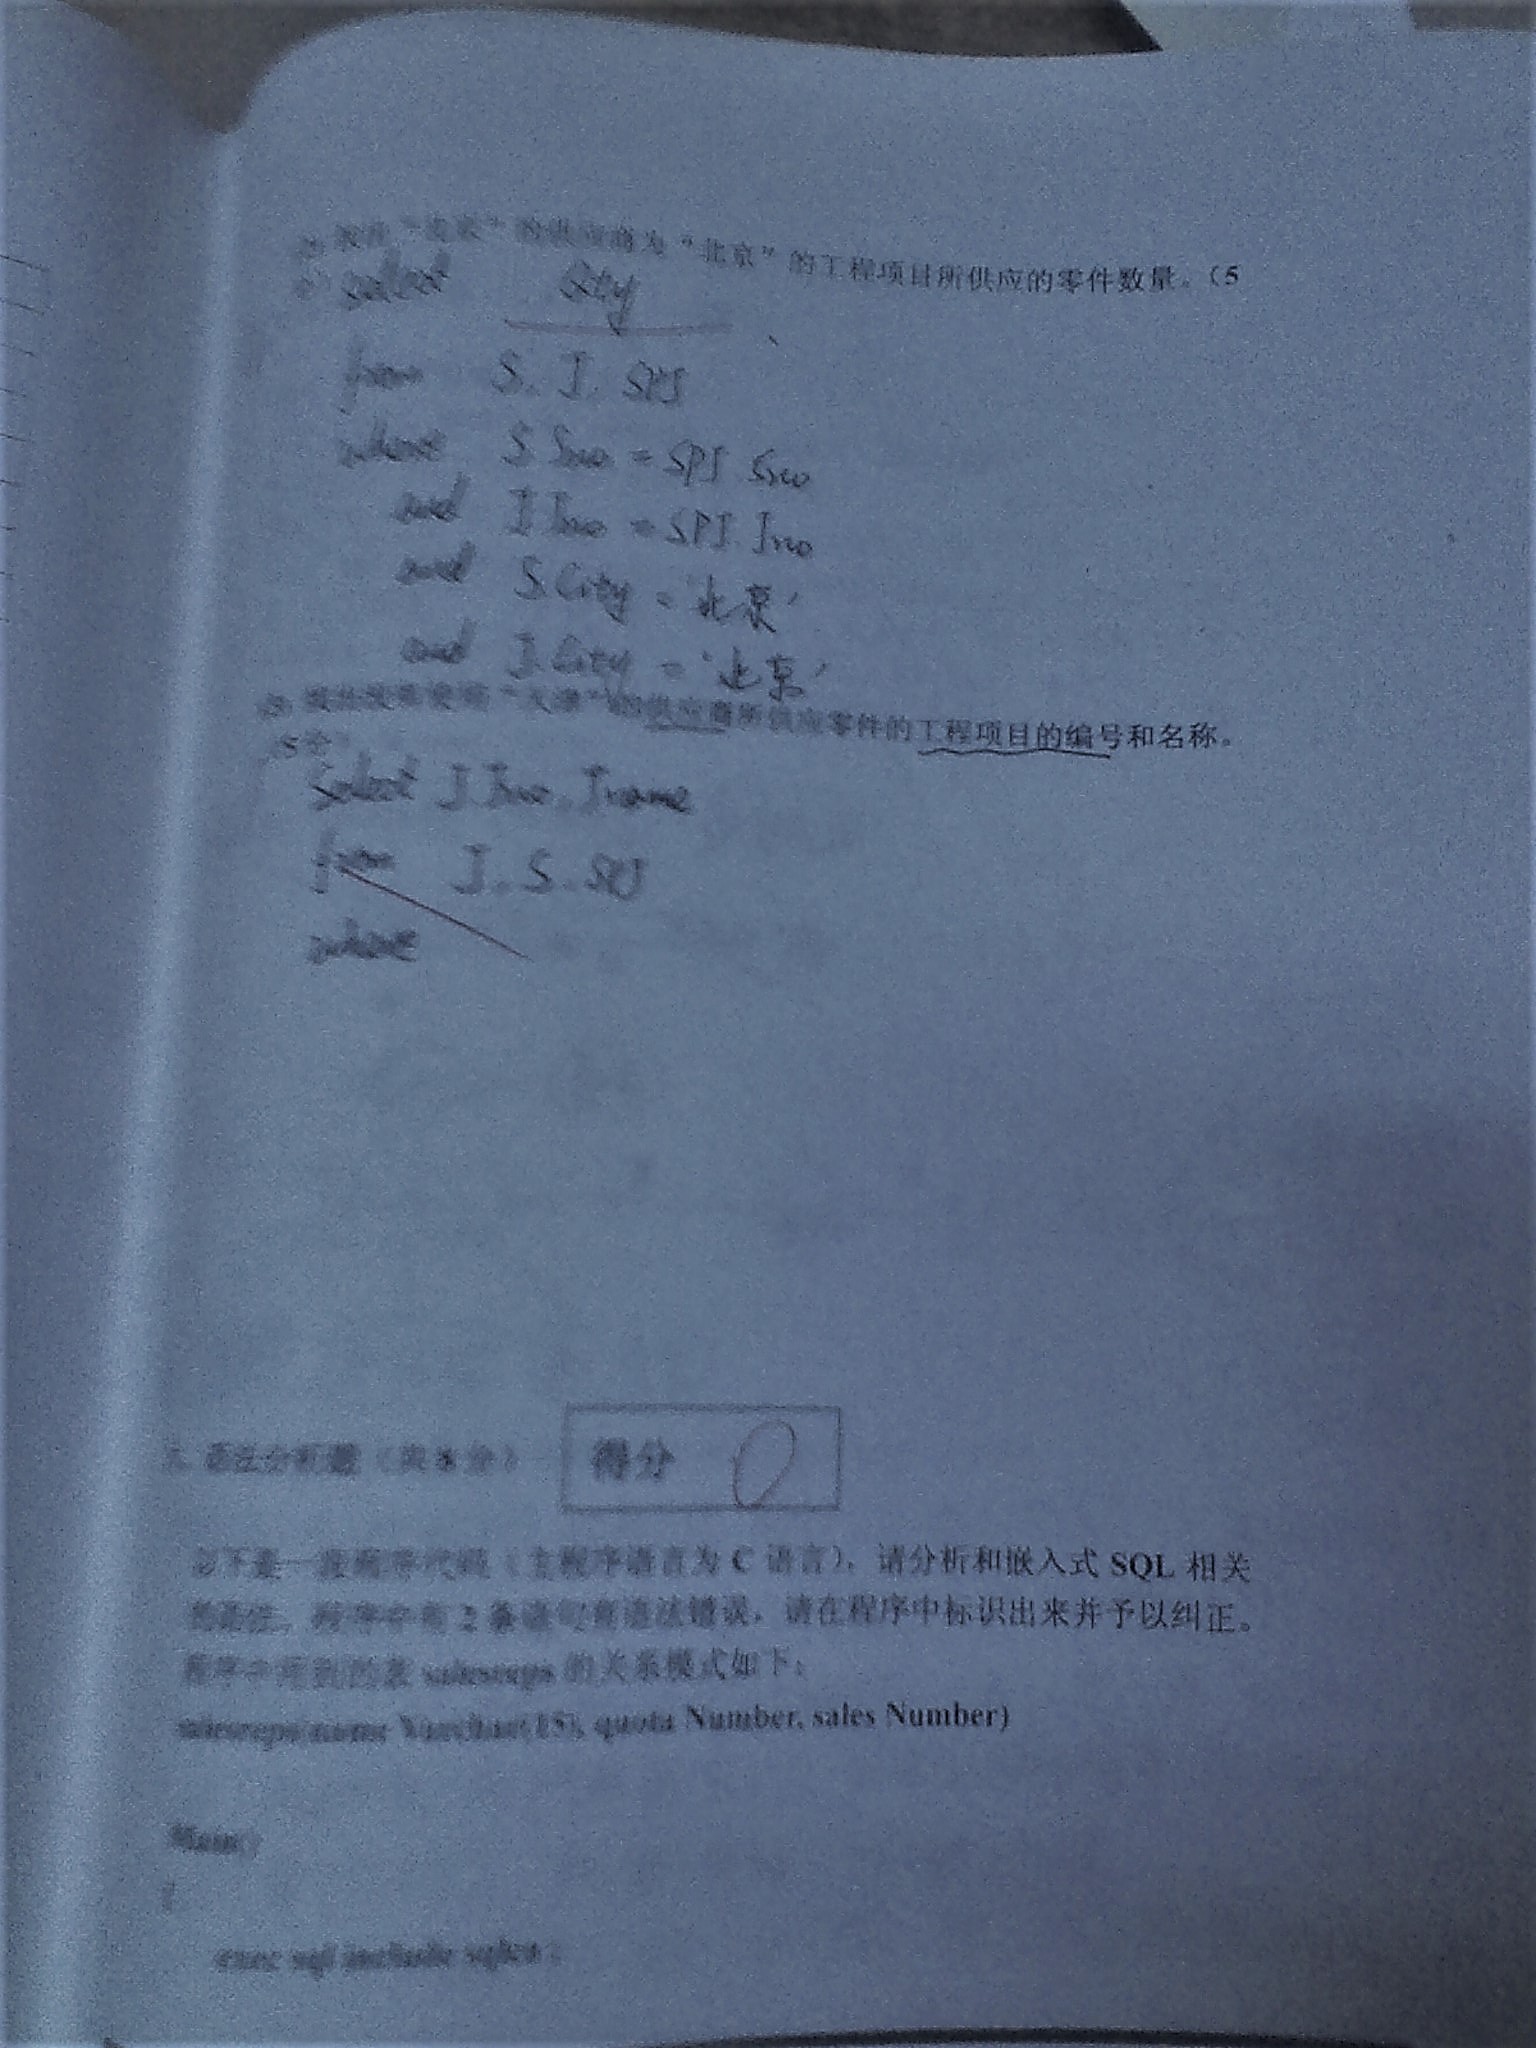 "北京"的供应商为"北京"的工程项目所供应的零件数量。（5
select Qty
from S, J, SPJ
where S.Sno = SPJ.Sno
and J.Jno = SPJ.Jno
and S.City = '北京'
and J.City = '北京'
"天津"的供应商所供应零件的工程项目的编号和名称。
（5分）
Select J.Jno, Jname
from J, S, SPJ
where
语法分析题（共8分） 得分 0
以下是一段程序代码（主程序语言为 C 语言），请分析和嵌入式 SQL 相关
的语法，程序中有 2 条语句有语法错误，请在程序中标识出来并予以纠正。
程序中用到的表 salesreps 的关系模式如下：
salesreps(name Varchar(15), quota Number, sales Number)
Main()
{
exec sql include sqlca ;